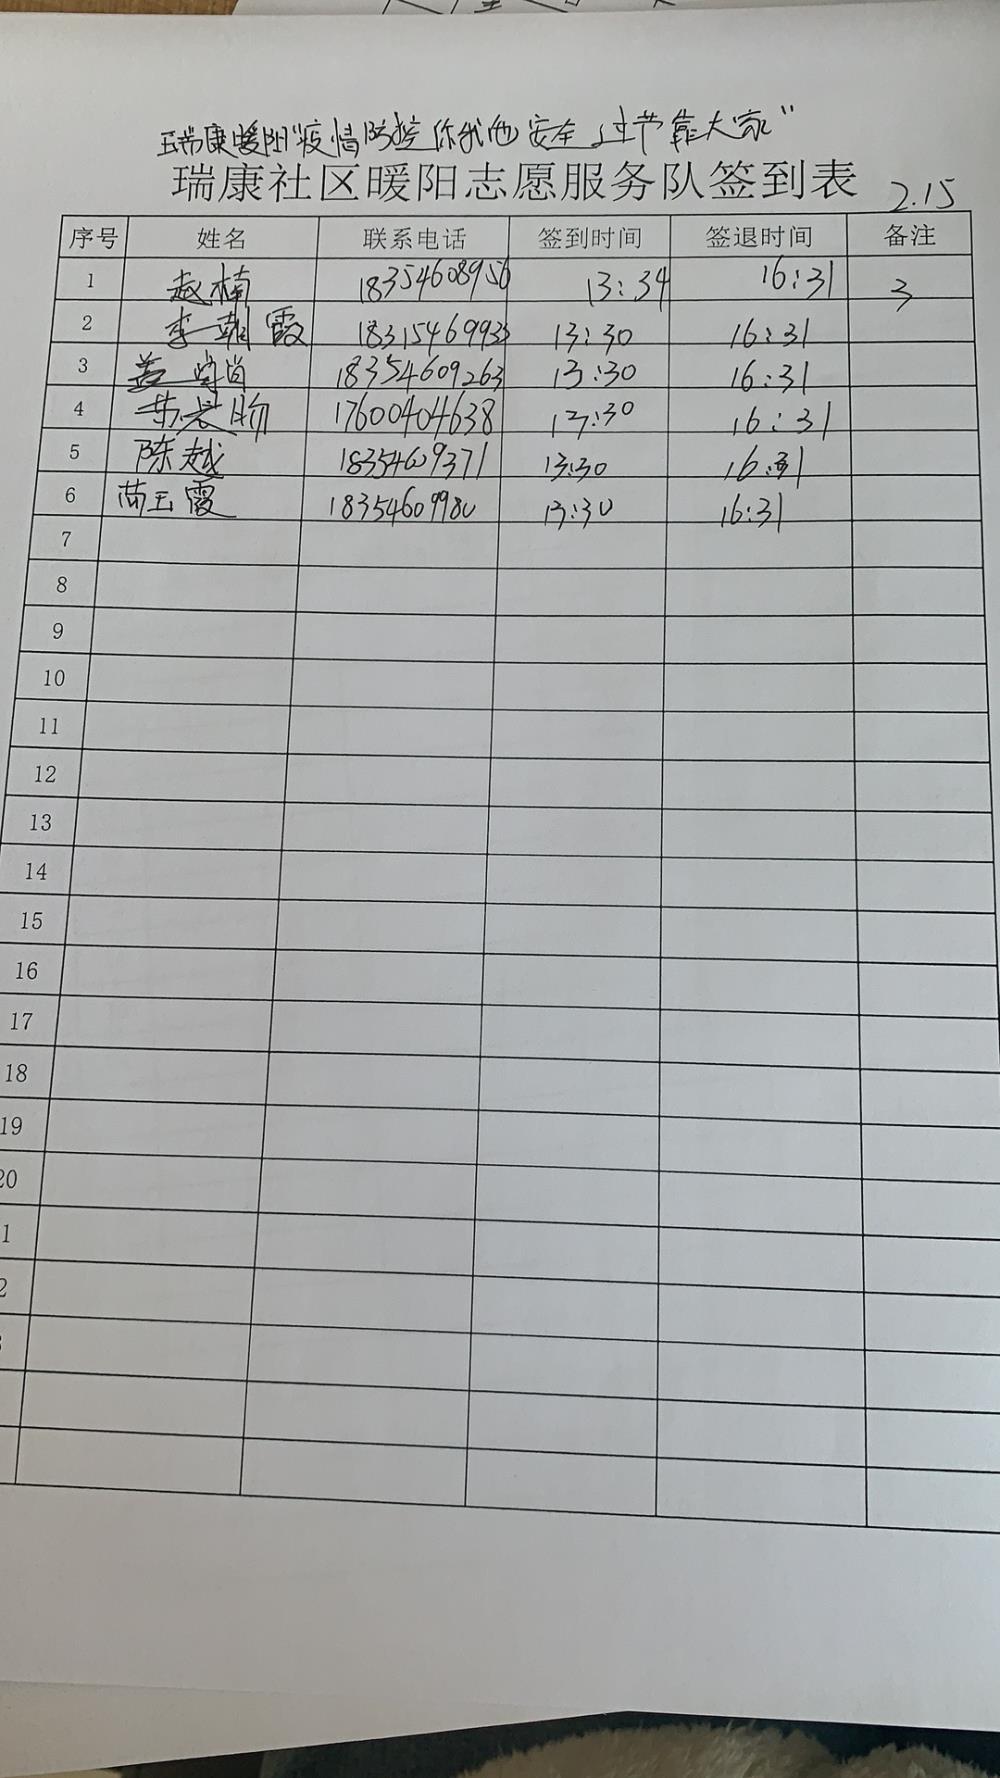 瑞康暖阳"疫情防控你我他 安全过节靠大家"
瑞康社区暖阳志愿服务队签到表 2.15
序号 姓名 联系电话 签到时间 签退时间 备注
1 赵楠 18354608956 13:34 16:31 3
2 李朝霞 18315469933 13:30 16:31
3 盖 18354609263 13:30 16:31
4 17600404638 13:30 16:31
5 陈越 18354609371 13:30 16:31
6 苘玉霞 18354609980 13:30 16:31
7
8
9
10
11
12
13
14
15
16
17
18
19
20
1
2